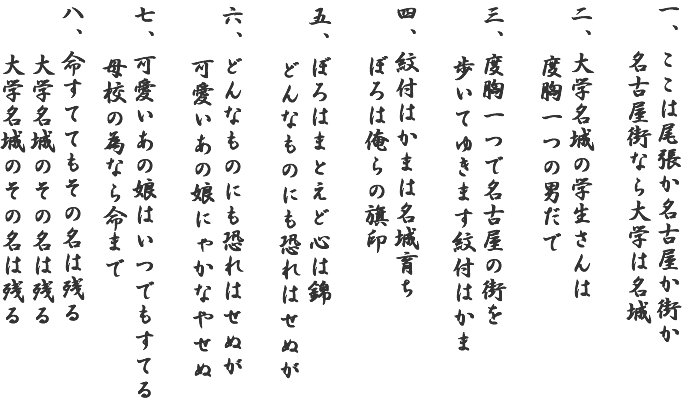 一、ここは尾張か名古屋か街か
名古屋街なら大学は名城
二、大学名城の学生さんは
度胸一つの男だで
三、度胸一つで名古屋の街を
歩いてゆきます紋付はかま
四、紋付はかまは名城育ち
ぼろは俺らの旗印
五、ぼろはまとえど心は錦
どんなものにも恐れはせぬが
六、どんなものにも恐れはせぬが
可愛いあの娘にゃかなやせぬ
七、可愛いあの娘はいつでもすてる
母校の為なら命まで
八、命すててもその名は残る
大学名城のその名は残る
大学名城のその名は残る